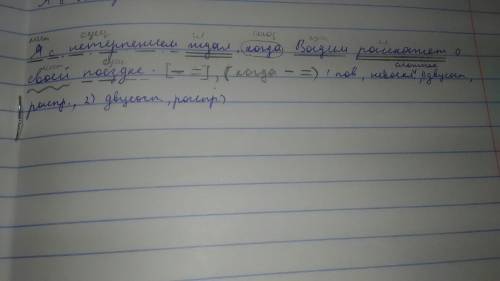 мест. сущ. гл. союз сущ.
Я с нетерпением ждал, когда Вадим расскажет о
мест. сущ. сложное
своей поездке. [— =], (когда — =) : пов, невоскл, 1) двусост,
распр., 2) двусост, распр.)